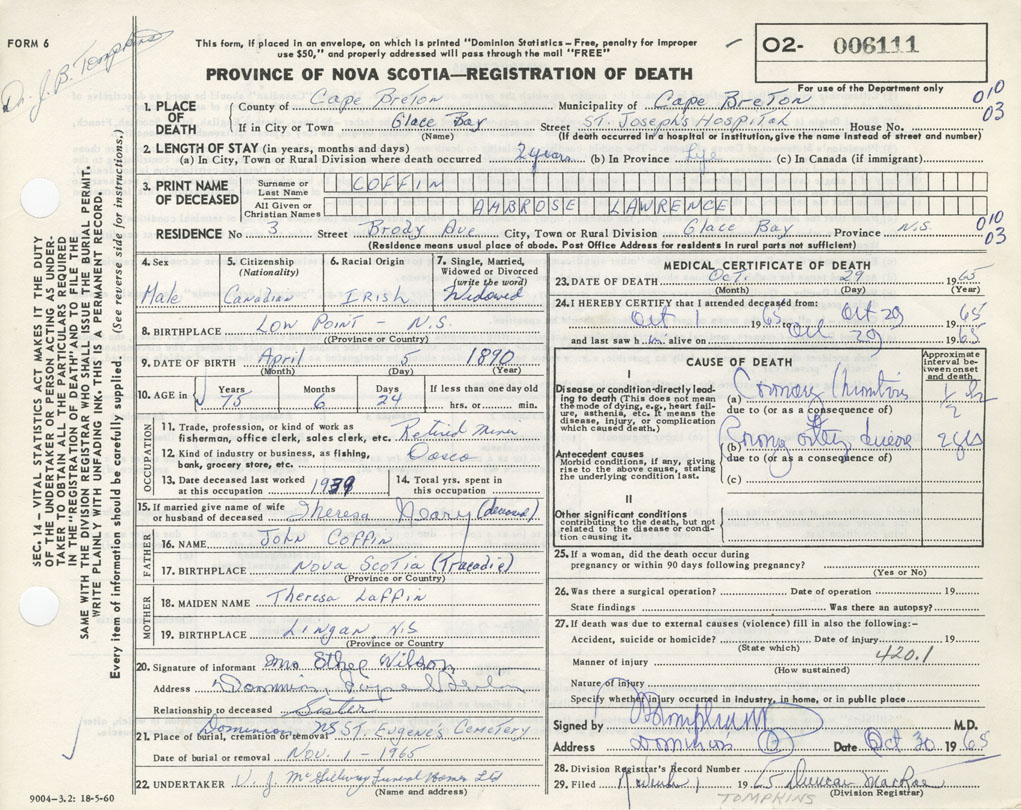 FORM 6
Dr. J. B. Tompkins
This form, if placed in an envelope, on which is printed "Dominion Statistics – Free, penalty for improper
use $50," and properly addressed will pass through the mail "FREE"
O2- 006111
For use of the Department only
PROVINCE OF NOVA SCOTIA—REGISTRATION OF DEATH
010
03
1. PLACE OF DEATH
County of Cape Breton Municipality of Cape Breton
If in City or Town Glace Bay Street ST. Joseph's Hospital House No.
(Name) (If death occurred in a hospital or institution, give the name instead of street and number)
2. LENGTH OF STAY (in years, months and days)
(a) In City, Town or Rural Division where death occurred 2 years (b) In Province Life (c) In Canada (if immigrant)
3. PRINT NAME OF DECEASED
Surname or Last Name COFFIN
All Given or Christian Names AMBROSE LAWRENCE
RESIDENCE No 3 Street Brody Ave City, Town or Rural Division Glace Bay Province N.S.
010
03
(Residence means usual place of abode. Post Office Address for residents in rural parts not sufficient)
4. Sex
Male
5. Citizenship (Nationality)
Canadian
6. Racial Origin
IRISH
7. Single, Married, Widowed or Divorced (write the word)
Widowed
8. BIRTHPLACE LOW POINT - N.S.
(Province or Country)
9. DATE OF BIRTH April 5 1890
(Month) (Day) (Year)
10. AGE in Years Months Days If less than one day old
75 6 24 hrs. or min.
OCCUPATION
11. Trade, profession, or kind of work as fisherman, office clerk, sales clerk, etc. Retired Miner
12. Kind of industry or business, as fishing, bank, grocery store, etc. Dosco
13. Date deceased last worked at this occupation 1939
14. Total yrs. spent in this occupation
15. If married give name of wife or husband of deceased Theresa Neary (deceased)
FATHER
16. NAME John Coffin
17. BIRTHPLACE Nova Scotia (Tracadie)
(Province or Country)
MOTHER
18. MAIDEN NAME Theresa Laffin
19. BIRTHPLACE Lingan, N.S
(Province or Country)
20. Signature of informant Mrs Ethel Wilson
Address Dominion, Cape Breton
Relationship to deceased Sister
21. Place of burial, cremation or removal Dominion NS ST. Eugene's Cemetery
Date of burial or removal Nov. 1 - 1965
22. UNDERTAKER V. J. McGillivray Funeral Homes Ltd
(Name and address)
MEDICAL CERTIFICATE OF DEATH
23. DATE OF DEATH Oct. 29 1965
(Month) (Day) (Year)
24. I HEREBY CERTIFY that I attended deceased from:
Oct 1 1965 Oct 29 1965
and last saw him alive on Oct 29 1965
CAUSE OF DEATH
Approximate interval between onset and death
I
Disease or condition directly leading to death (This does not mean the mode of dying, e.g., heart failure, asthenia, etc. It means the disease, injury, or complication which caused death.)
(a) Coronary Thrombosis
due to (or as a consequence of)
(b) Coronary artery disease 2 yrs
due to (or as a consequence of)
Antecedent causes
Morbid conditions, if any, giving rise to the above cause, stating the underlying condition last.
(c)
II
Other significant conditions
contributing to the death, but not related to the disease or condition causing it.
25. If a woman, did the death occur during
pregnancy or within 90 days following pregnancy?
(Yes or No)
26. Was there a surgical operation? Date of operation 19
State findings Was there an autopsy?
27. If death was due to external causes (violence) fill in also the following:–
Accident, suicide or homicide? Date of injury 19
(State which)
420.1
Manner of injury
(How sustained)
Nature of injury
Specify whether injury occurred in industry, in home, or in public place
Signed by M.D.
Address Dominion Date Oct 30 1965
28. Division Registrar's Record Number
29. Filed 1 1965 Duncan MacRae
(Division Registrar)
TOMPKINS
9004-3.2: 18-5-60
SEC. 14 – VITAL STATISTICS ACT MAKES IT THE DUTY
OF THE UNDERTAKER OR PERSON ACTING AS UNDER-
TAKER TO OBTAIN ALL THE PARTICULARS REQUIRED
IN THE "REGISTRATION OF DEATH" AND TO FILE THE
SAME WITH THE DIVISION REGISTRAR WHO SHALL ISSUE THE BURIAL PERMIT.
WRITE PLAINLY WITH UNFADING INK. THIS IS A PERMANENT RECORD.
Every item of information should be carefully supplied. (See reverse side for instructions.)